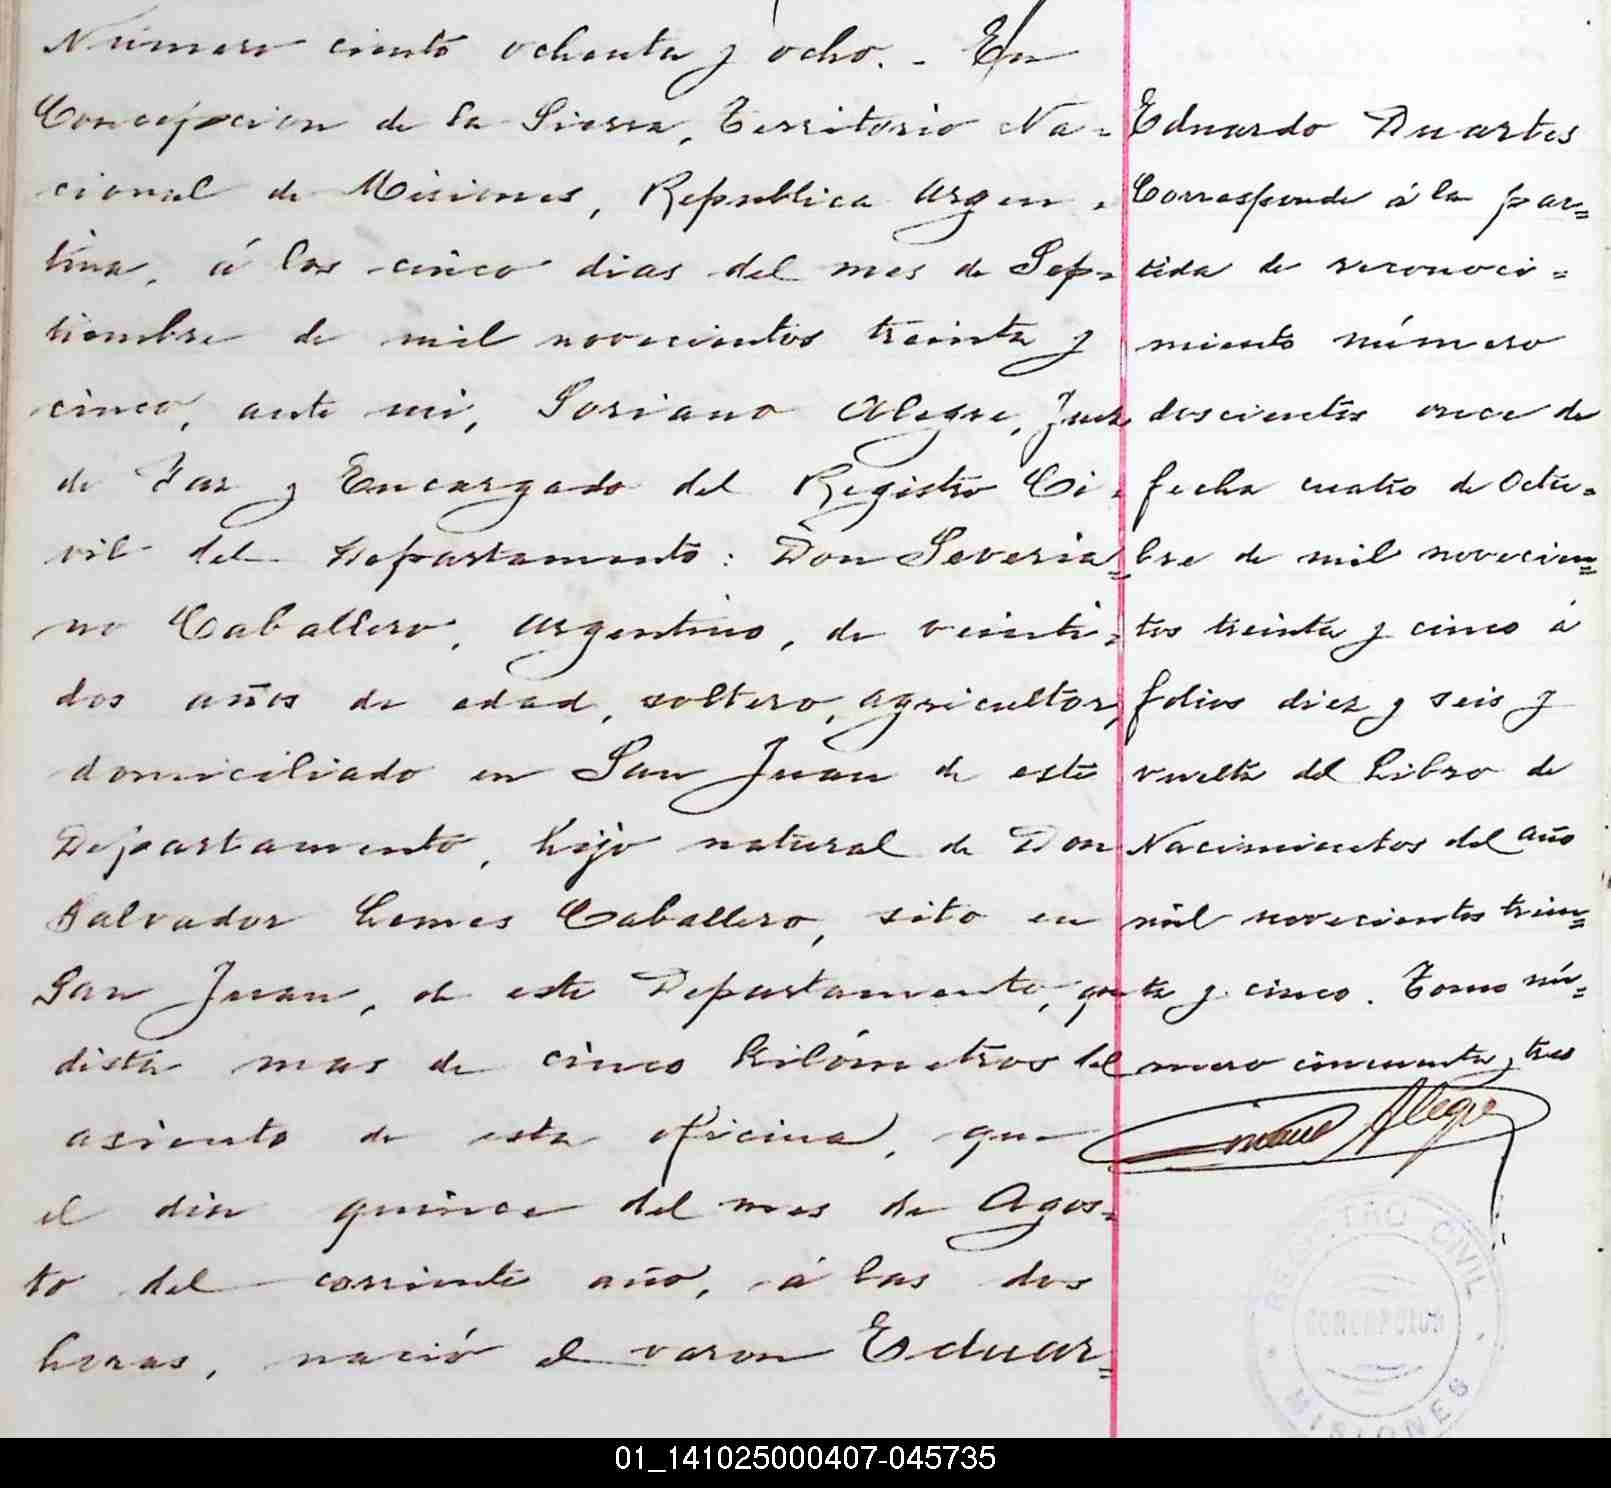 Número ciento ochenta y ocho. - En
Concepción de la Sierra, Territorio Na=
cional de Misiones, Republica Argen=
tina, á los cinco dias del mes de Sep=
tiembre de mil novecientos treinta y
cinco, ante mi, Soriano Alegre, Juez
de Paz y Encargado del Registro Ci=
vil del Departamento: Don Severia=
no Caballero, argentino, de veinti=
dos años de edad, soltero, agricultor,
domiciliado en San Juan de este
Departamento, hijo natural de Don
Salvador Lemes Caballero, sito en
San Juan, de este Departamento, que
dista mas de cinco kilómetros del
asiento de esta oficina, que
el dia quince del mes de Agos=
to del corriente año, á las dos
horas, nació el varon Eduar=
Eduardo Duartes
Corresponde á la par=
tida de reconoci=
miento número
doscientos once de
fecha cuatro de Octu=
bre de mil novecien=
tos treinta y cinco á
folios diez y seis y
vuelta del Libro de
Nacimientos del año
mil novecientos trein=
ta y cinco. Tomo nú=
mero cincuenta y tres
Alegre
REGISTRO CIVIL
CONCEPCION
MISIONES
01_141025000407-045735